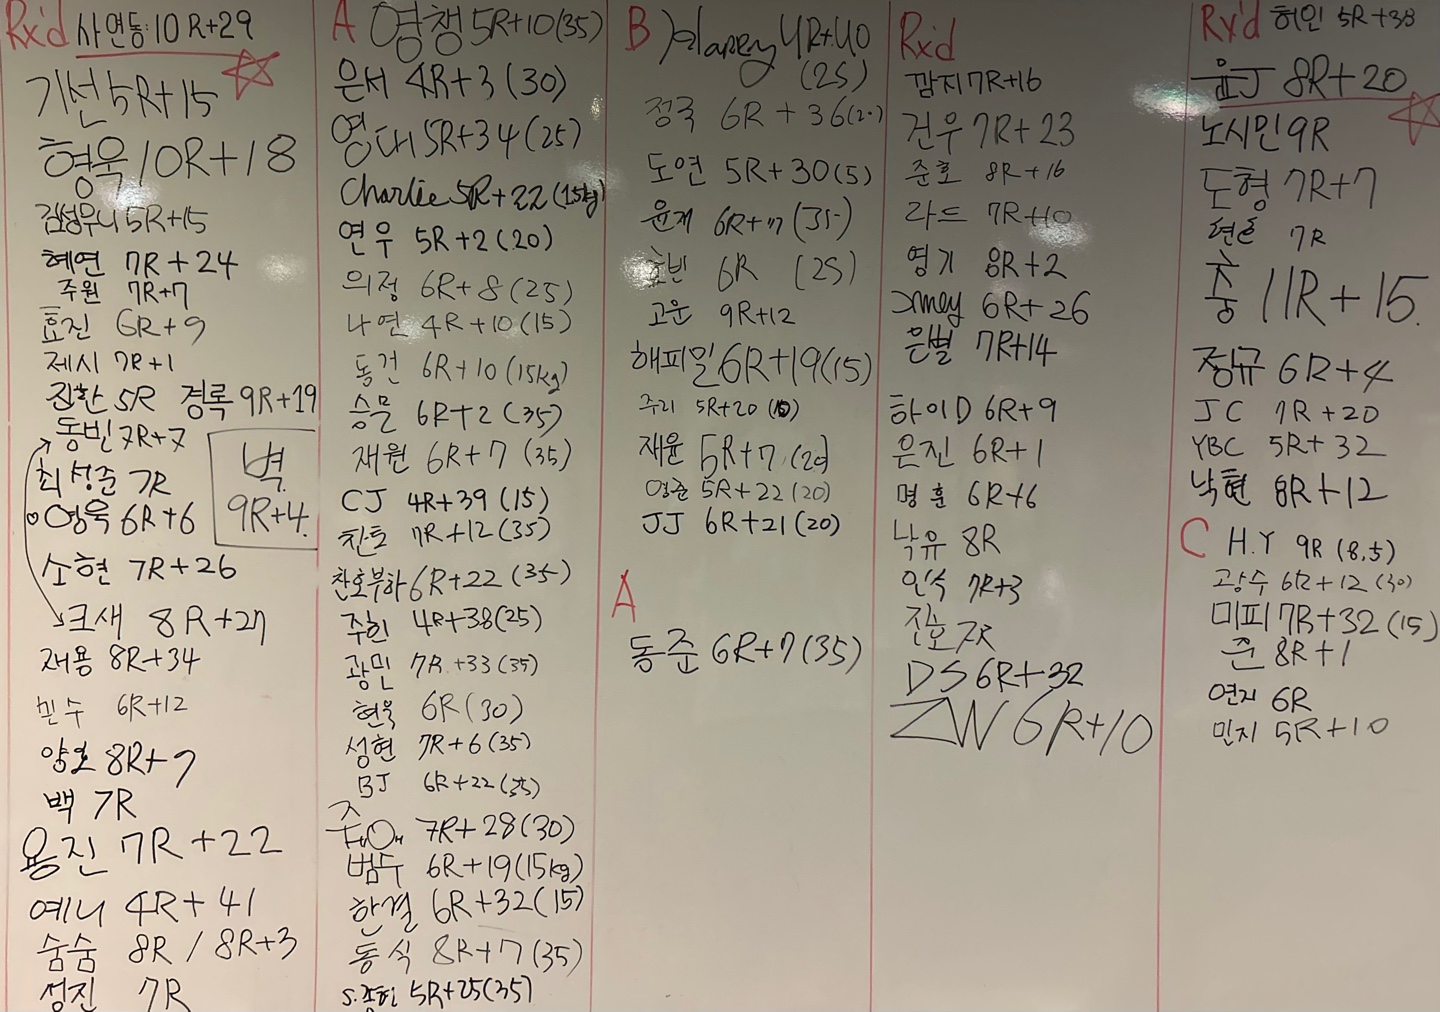 Rx'd 사연동:10R+29
기선 5R+15
형욱 10R+18
김성우니 5R+15
혜연 7R+24
주원 7R+7
효진 6R+9
제시 7R+1
진한 5R 경록 9R+19
동빈 7R+7
벽 9R+4
최성준 7R
영욱 6R+6
소현 7R+26
크새 8R+27
재용 8R+34
민수 6R+12
양호 8R+9
백 7R
용진 7R+22
예니 4R+41
숨숨 8R / 8R+3
성진 7R
A 영챙 5R+10(35)
은서 4R+3(30)
영대 5R+34(25)
Charlie 5R+22(15kg)
연우 5R+2(20)
의정 6R+8(25)
나연 4R+10(15)
동건 6R+10(15kg)
승물 6R+2(35)
재원 6R+7(35)
CJ 4R+39(15)
찬토 7R+12(35)
찬호부하 6R+22(35)
주힌 4R+38(25)
광민 7R+33(35)
현욱 6R(30)
성현 7R+6(35)
BJ 6R+22(35)
7R+28(30)
범수 6R+19(15kg)
한결 6R+32(15)
동식 8R+7(35)
5R+25(35)
B Harry 4R+40
(25)
정국 6R+36(20)
도연 5R+30(5)
윤재 6R+17(35)
효빈 6R (25)
고운 9R+12
해피밀 6R+19(15)
주리 5R+20(10)
재윤 5R+7(20)
영준 5R+22(20)
JJ 6R+21(20)
A
동준 6R+7(35)
Rx'd
깜지 7R+16
건우 7R+23
준호 8R+16
라드 7R+10
영기 8R+2
6R+26
은별 7R+14
하이D 6R+9
은진 6R+1
명훈 6R+6
낙유 8R
인식 7R+3
진호 7R
DS 6R+32
ZW 6R+10
Rx'd 허인 5R+38
윤J 8R+20
노시민 9R
도형 7R+7
7R
충 11R+15
정규 6R+4
JC 7R+20
YBC 5R+32
낙현 8R+12
C H.Y 9R (8.5)
광수 6R+12(30)
미피 7R+32(15)
준 8R+1
연지 6R
민지 5R+10